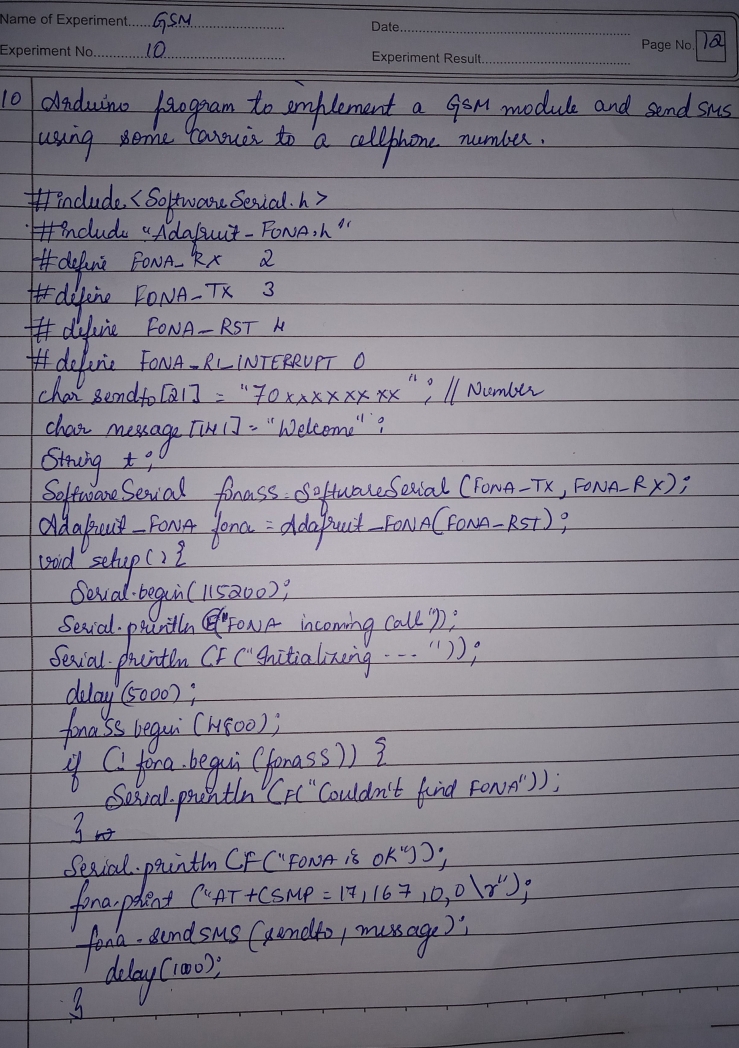 Name of Experiment...... GSM
Date
Experiment No. 10
Experiment Result
Page No. 12
10 Arduino program to emplement a GSM module and send SMS
using some carrier to a cellphone number.
#include <SoftwareSerial.h>
#include "Adafruit_FONA.h"
#define FONA_RX 2
#define FONA_TX 3
#define FONA_RST 4
#define FONA_RI_INTERRUPT 0
char sendto[21] = "70xxxxxxxx"; // Number
char message[141] = "Welcome";
String t;
SoftwareSerial fonass = SoftwareSerial (FONA_TX, FONA_RX);
Adafruit_FONA fona = Adafruit_FONA(FONA_RST);
void setup() {
Serial.begin(115200);
Serial.println (F("FONA incoming call"));
Serial.println (F("Initializing ---"));
delay(5000);
fonaSS begin (4800);
if (! fona.begin (fonass)) {
Serial.println (F("Couldn't find FONA"));
}
Serial.println (F("FONA is OK"));
fona.print ("AT+CSMP=17,167,0,0\r");
fona.sendSMS (sendto, message);
delay(1000);
}